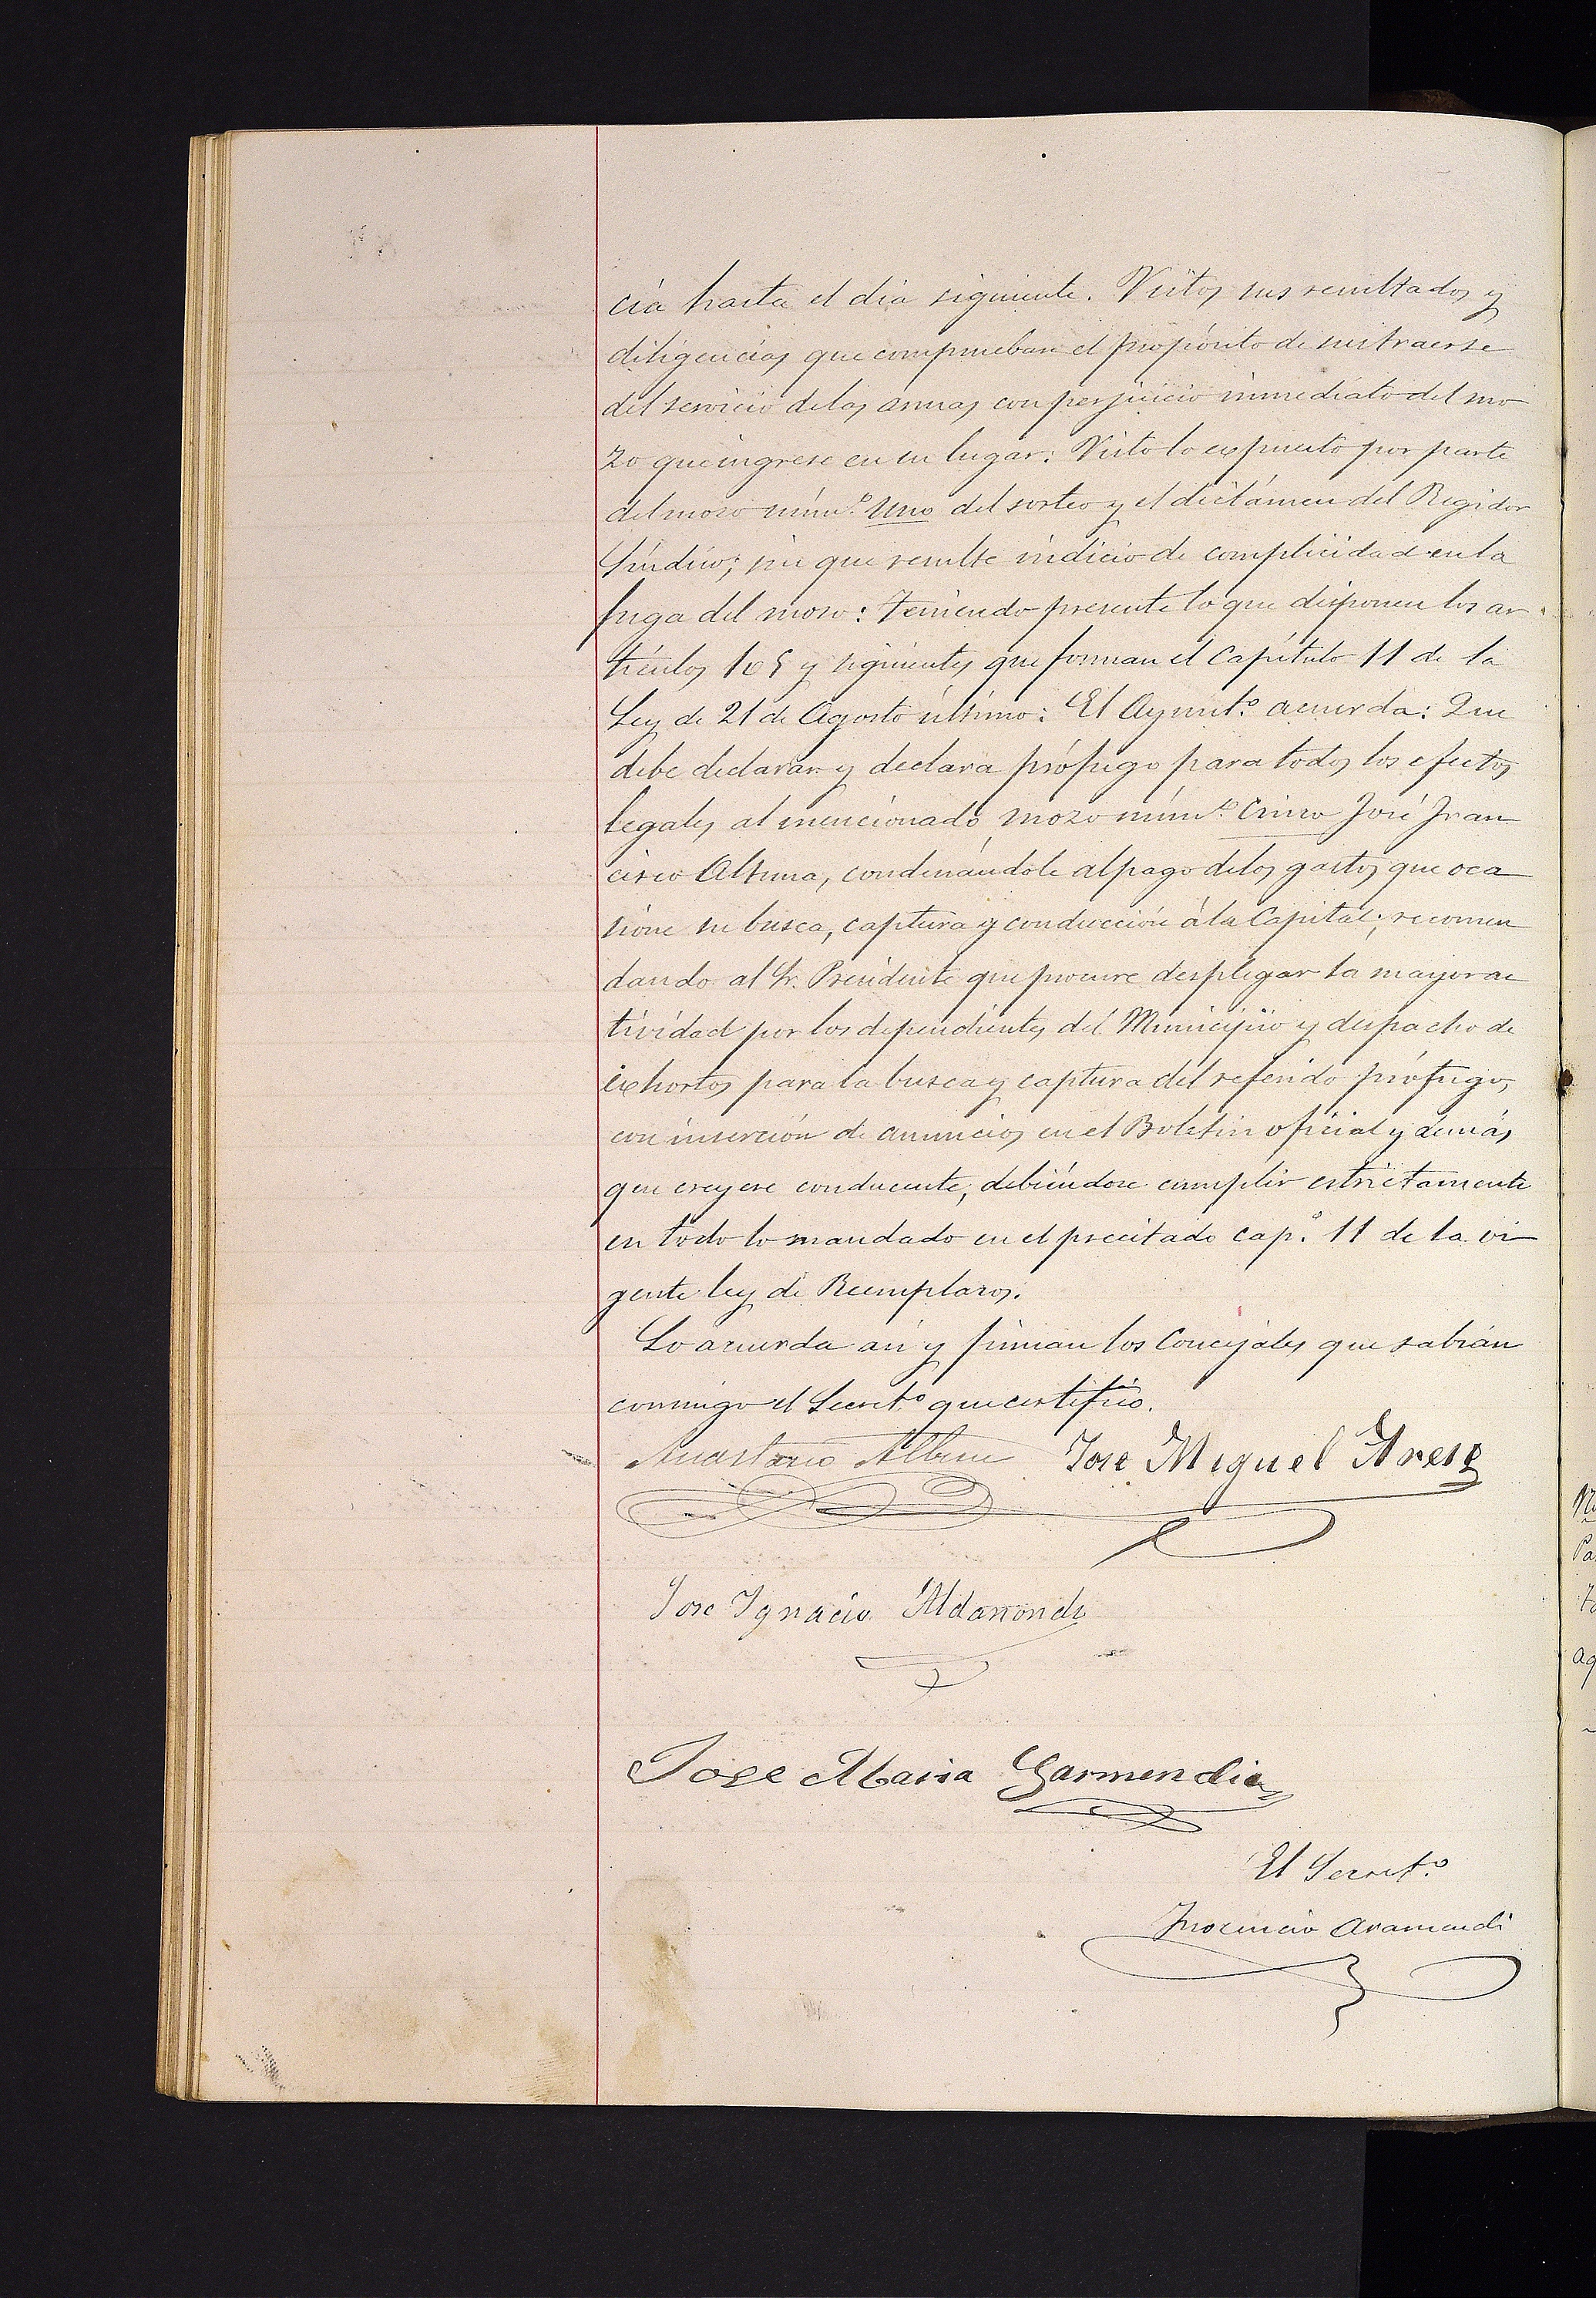 cia hasta el dia siguiente. Vistos sus resultados y
diligencias que comprueban el propósito de sustraerse
del servicio de las armas con perjuicio inmediato del mo
zo que ingrese en su lugar: Visto lo expuesto por parte
del mozo núm.º Uno del sorteo y el dictámen del Regidor
Síndico; sin que resulte indicio de complicidad en la
fuga del mozo: Teniendo presente lo que disponen los ar
tículos 105 y siguientes que forman el Capítulo 11 de la
Ley de 21 de Agosto último: El Ayunt.º acuerda: Que
debe declarar y declara prófugo para todos los efectos
legales al mencionado mozo núm.º Cinco José Fran
cisco Altuna, condenándole al pago de los gastos que oca
sione su busca, captura y conducción á la Capital; recomen
dando al Sr. Presidente que procure desplegar la mayor ac
tividad por los dependientes del Municipio y despacho de
exhortos para la busca y captura del referido prófugo,
con inserción de anuncios en el Boletin oficial y demás
que creyere conducente, debiéndose cumplir estrictamente
en todo lo mandado en el precitado cap.º 11 de la vi
gente ley de Reemplazos.
Lo acuerda así y firman los Concejales que sabian
conmigo el Secret.º que certifico.
Anastasio Jose Miguel
Jose Ignacio Aldanondo
Jose Maria Garmendia
El Secret.º
Inocencio Aramendi